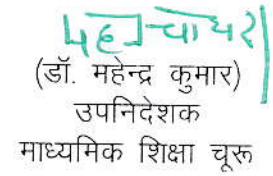 (डॉ. महेन्द्र कुमार)
उपनिदेशक
माध्यमिक शिक्षा चूरू